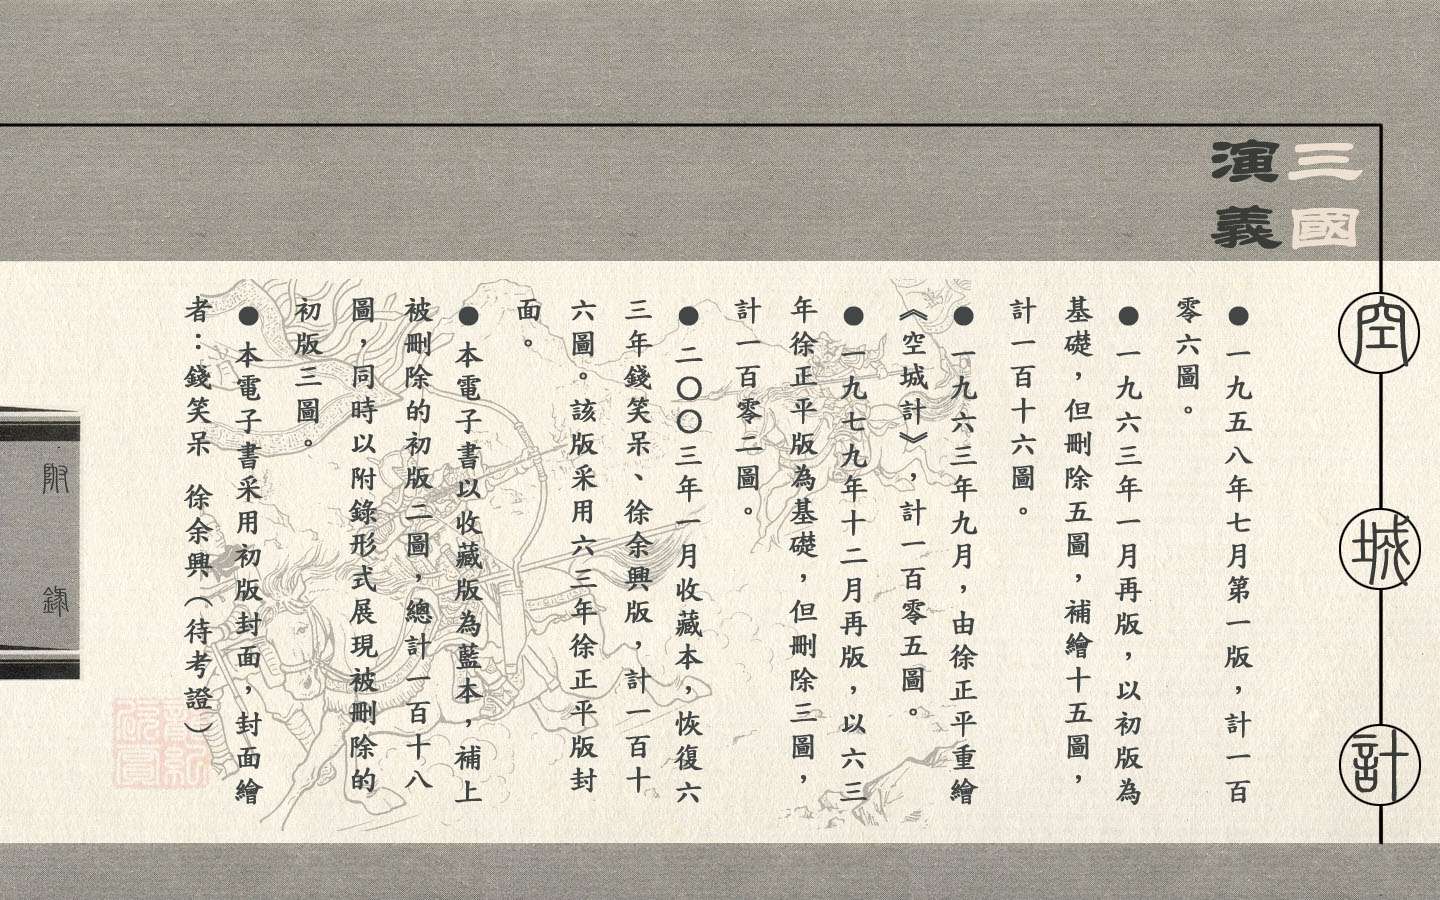 三國
演義
空城計
●一九五八年七月第一版，計一百
零六圖。
●一九六三年一月再版，以初版為
基礎，但刪除五圖，補繪十五圖，
計一百十六圖。
●一九六三年九月，由徐正平重繪
《空城計》，計一百零五圖。
●一九七九年十二月再版，以六三
年徐正平版為基礎，但刪除三圖，
計一百零二圖。
●二〇〇三年一月收藏本，恢復六
三年錢笑呆、徐余興版，計一百十
六圖。該版采用六三年徐正平版封
面。
●本電子書以收藏版為藍本，補上
被刪除的初版二圖，總計一百十八
圖，同時以附錄形式展現被刪除的
初版三圖。
●本電子書采用初版封面，封面繪
者：錢笑呆 徐余興（待考證）
附錄